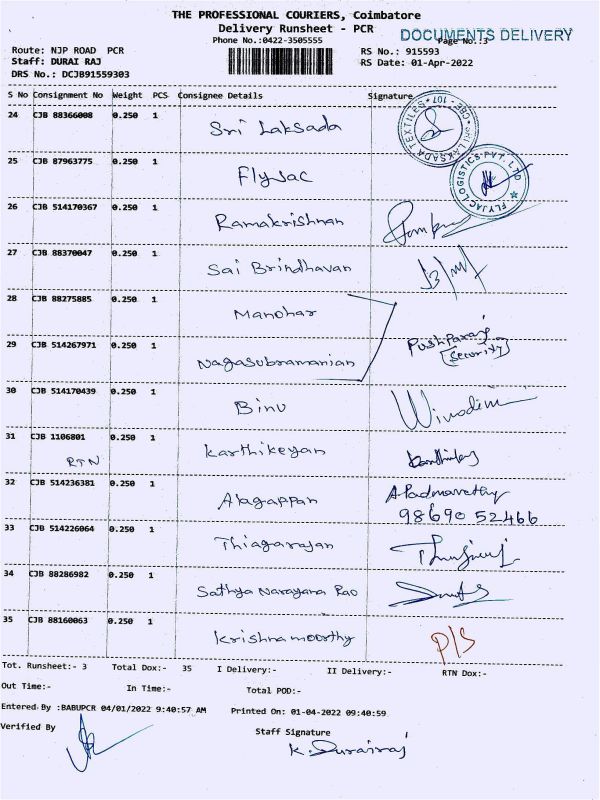 THE PROFESSIONAL COURIERS, Coimbatore
DOCUMENTS DELIVERY
Delivery Runsheet - PCR
Phone No.:0422-3505555
Page No.:3
Route: NJP ROAD PCR
RS No.: 915593
Staff: DURAI RAJ
RS Date: 01-Apr-2022
DRS No.: DCJB91559303
S No Consignment No Weight PCS Consignee Details Signature
24 CJB 88366008 0.250 1 Sri Laksada
SRI LAKSADA TEXTILES CBE - 101
25 CJB 87963775 0.250 1 Flyjac
FLYJAC LOGISTICS PVT. LTD
26 CJB 514170367 0.250 1 Ramakrishnan
27 CJB 88370047 0.250 1 Sai Brindhavan
28 CJB 88275885 0.250 1 Manohar
Pushparaj
(Security)
29 CJB 514267971 0.250 1 Nagasubramanian
30 CJB 514170439 0.250 1 Binu
31 CJB 1106801 0.250 1 Karthikeyan
RTN
32 CJB 514236381 0.250 1 Alagappan
98690 52466
33 CJB 514226064 0.250 1 Thiagarajan
34 CJB 88286982 0.250 1 Sathya Narayana Rao
35 CJB 88160063 0.250 1 Krishnamoorthy P/S
Tot. Runsheet:- 3 Total Dox:- 35 I Delivery:- II Delivery:- RTN Dox:-
Out Time:- In Time:- Total POD:-
Entered By :BABUPCR 04/01/2022 9:40:57 AM Printed On: 01-04-2022 09:40:59
Verified By
Staff Signature
K. Durairaj